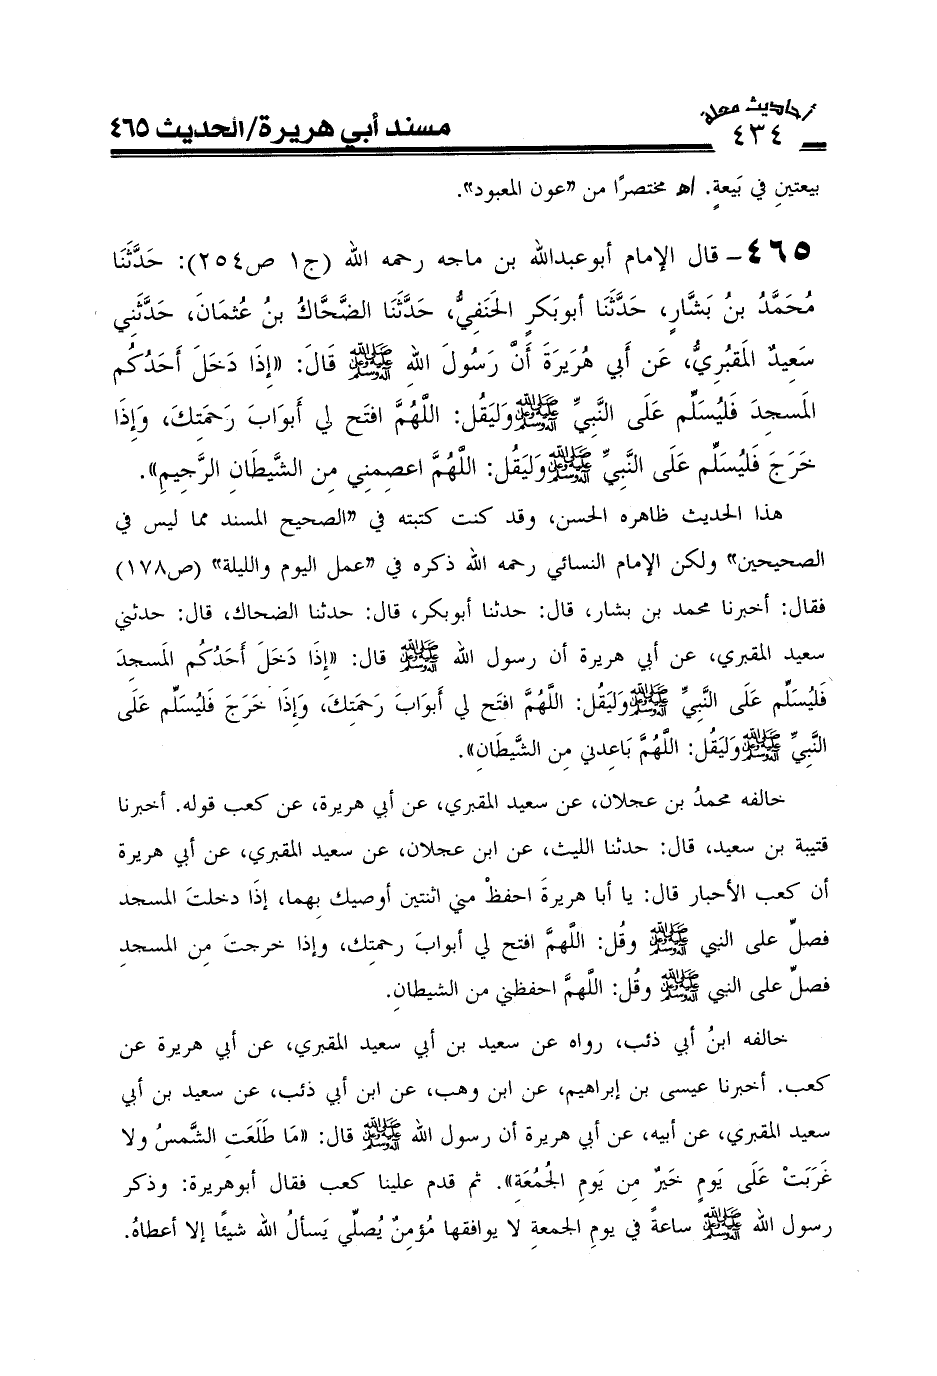 أحاديث معلة
٤٣٤
مسند أبي هريرة/الحديث ٤٦٥
بيعتينِ في بَيعةٍ. اﻫ مختصرًا من «عون المعبود».
٤٦٥- قال الإمام أبوعبدالله بن ماجه رحمه الله (ج١ ص٢٥٤): حَدَّثَنَا
مُحَمَّدُ بنُ بَشَّارٍ، حَدَّثَنَا أبوبَكرٍ الحَنَفِيُّ، حَدَّثَنَا الضَّحَّاكُ بنُ عُثمَانَ، حَدَّثَنِي
سَعِيدٌ المَقبُرِيُّ، عَن أَبِي هُرَيرَةَ أَنَّ رَسُولَ اللهِ ﷺ قَالَ: «إِذَا دَخَلَ أَحَدُكُم
المَسجِدَ فَليُسَلِّم عَلَى النَّبِيِّ ﷺ وَليَقُل: اللَّهُمَّ افتَح لِي أَبوَابَ رَحمَتِكَ، وَإِذَا
خَرَجَ فَليُسَلِّم عَلَى النَّبِيِّ ﷺ وَليَقُل: اللَّهُمَّ اعصِمنِي مِن الشَّيطَانِ الرَّجِيمِ».
هذا الحديث ظاهره الحسن، وقد كنت كتبته في «الصحيح المسند مما ليس في
الصحيحين» ولكن الإمام النسائي رحمه الله ذكره في «عمل اليوم والليلة» (ص١٧٨)
فقال: أخبرنا محمد بن بشار، قال: حدثنا أبوبكر، قال: حدثنا الضحاك، قال: حدثني
سعيد المقبري، عن أبي هريرة أن رسول الله ﷺ قال: «إِذَا دَخَلَ أَحَدُكُم المَسجِدَ
فَليُسَلِّم عَلَى النَّبِيِّ ﷺ وَليَقُل: اللَّهُمَّ افتَح لِي أَبوَابَ رَحمَتِكَ، وَإِذَا خَرَجَ فَليُسَلِّم عَلَى
النَّبِيِّ ﷺ وَليَقُل: اللَّهُمَّ بَاعِدنِي مِن الشَّيطَانِ».
خالفه محمدُ بن عجلان، عن سعيد المقبري، عن أبي هريرة، عن كعب قوله. أخبرنا
قتيبة بن سعيد، قال: حدثنا الليث، عن ابن عجلان، عن سعيد المقبري، عن أبي هريرة
أن كعب الأحبار قال: يا أبا هريرةَ احفظْ مني اثنتين أوصيك بِهما، إذَا دخلتَ المسجد
فصلِّ على النبي ﷺ وقُل: اللَّهمَّ افتح لي أبوابَ رحمتِك، وإذا خرجتَ مِن المسجدِ
فصلِّ على النبي ﷺ وقُل: اللَّهمَّ احفظني من الشيطانِ.
خالفه ابنُ أبي ذئب، رواه عن سعيد بن أبي سعيد المقبري، عن أبي هريرة عن
كعب. أخبرنا عيسى بن إبراهيم، عن ابن وهب، عن ابن أبي ذئب، عن سعيد بن أبي
سعيد المقبري، عن أبيه، عن أبي هريرة أن رسول الله ﷺ قال: «مَا طَلَعَت الشَّمسُ ولا
غَرَبَتْ عَلَى يَومٍ خَيرٌ مِن يَومِ الجُمُعَةِ». ثم قدم علينا كعب فقال أبوهريرة: وذكر
رسول الله ﷺ ساعةً في يومِ الجمعةِ لا يوافقها مُؤمِنٌ يُصلِّي يَسألُ الله شيئًا إلا أعطاهُ.